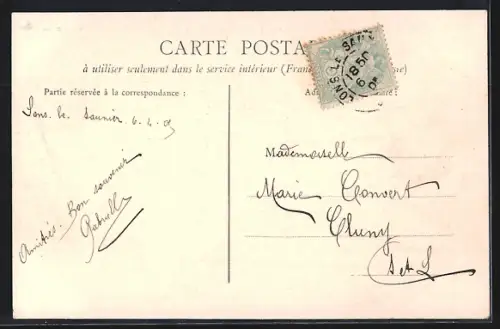 CARTE POSTA
à utiliser seulement dans le service intérieur (Fran
Partie réservée à la correspondance :
Lons le Saunier 6.4.05
Amitiés. Bon souvenir
Gabrielle
LONS-LE-SAUN
18 50
6
Mademoiselle
Marie Convert
Cluny
S et L